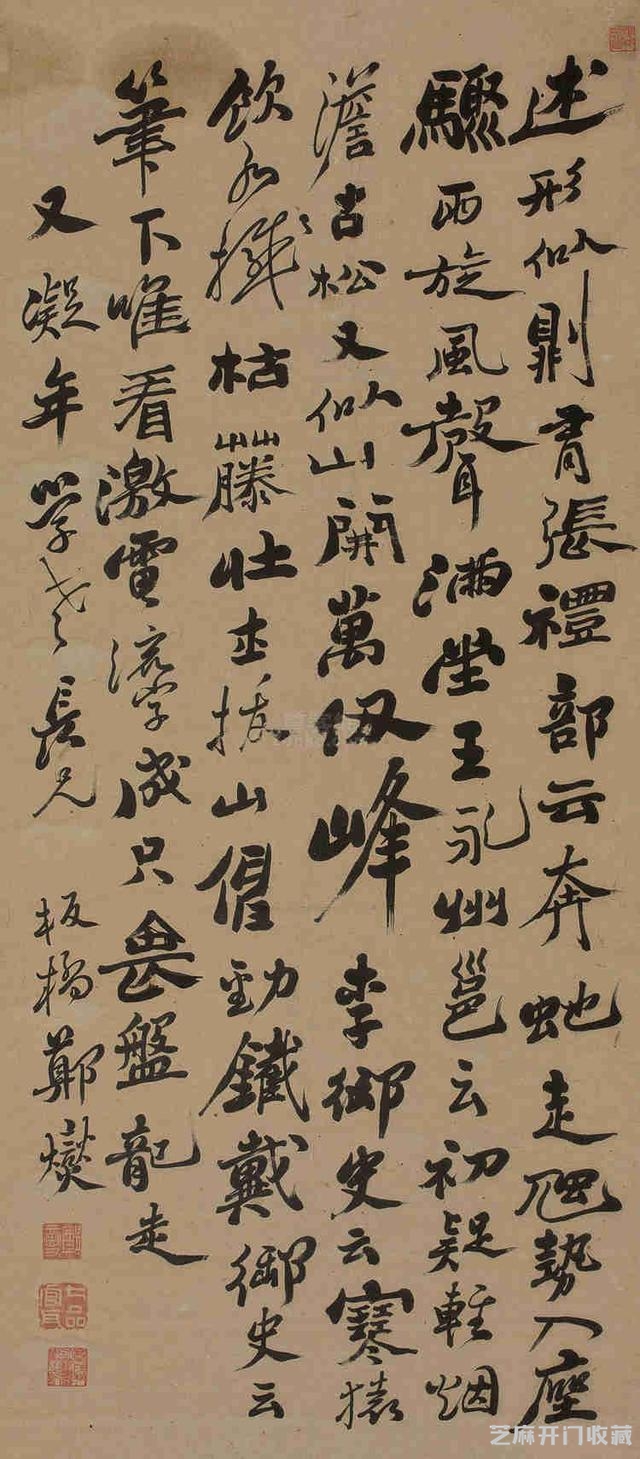 述形似則有張禮部云奔虵走虺勢入座
驟雨旋風聲滿堂王永州邕云初疑輕烟
澹古松又似山開萬仞峰李御史云寒猿
飲水撼枯藤壯士拔山伸勁鐵戴御史云
筆下唯看激電流字成只畏盤龍走
又凝年學老長兄
板橋鄭燮
七品官耳
芝麻开门收藏